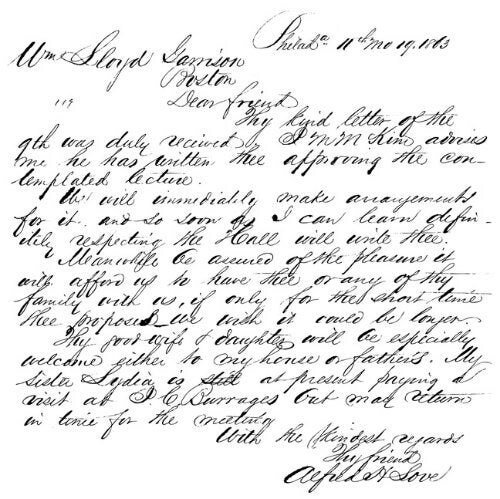 Philada 11th mo 19. 1863
Wm Lloyd Garrison
Boston
Dear friend
Thy kind letter of the
9th was duly received, J M McKim advises
me he has written thee approving the con-
templated lecture.
We will immediatily make arrangements
for it. and so soon as I can learn defin-
itily respecting the Hall will write thee.
Meanwhile be assured of the pleasure it
will afford us to have thee or any of thy
family with us, if only for the short time
thee proposes we wish it could be longer.
Thy good wife & daughter will be especially
welcome either to my house or father's. My
sister Lydia is still at present paying a
visit at J C Burrages but may return
in time for the meeting
With the kindest regards
Thy friend
Alfred H Love